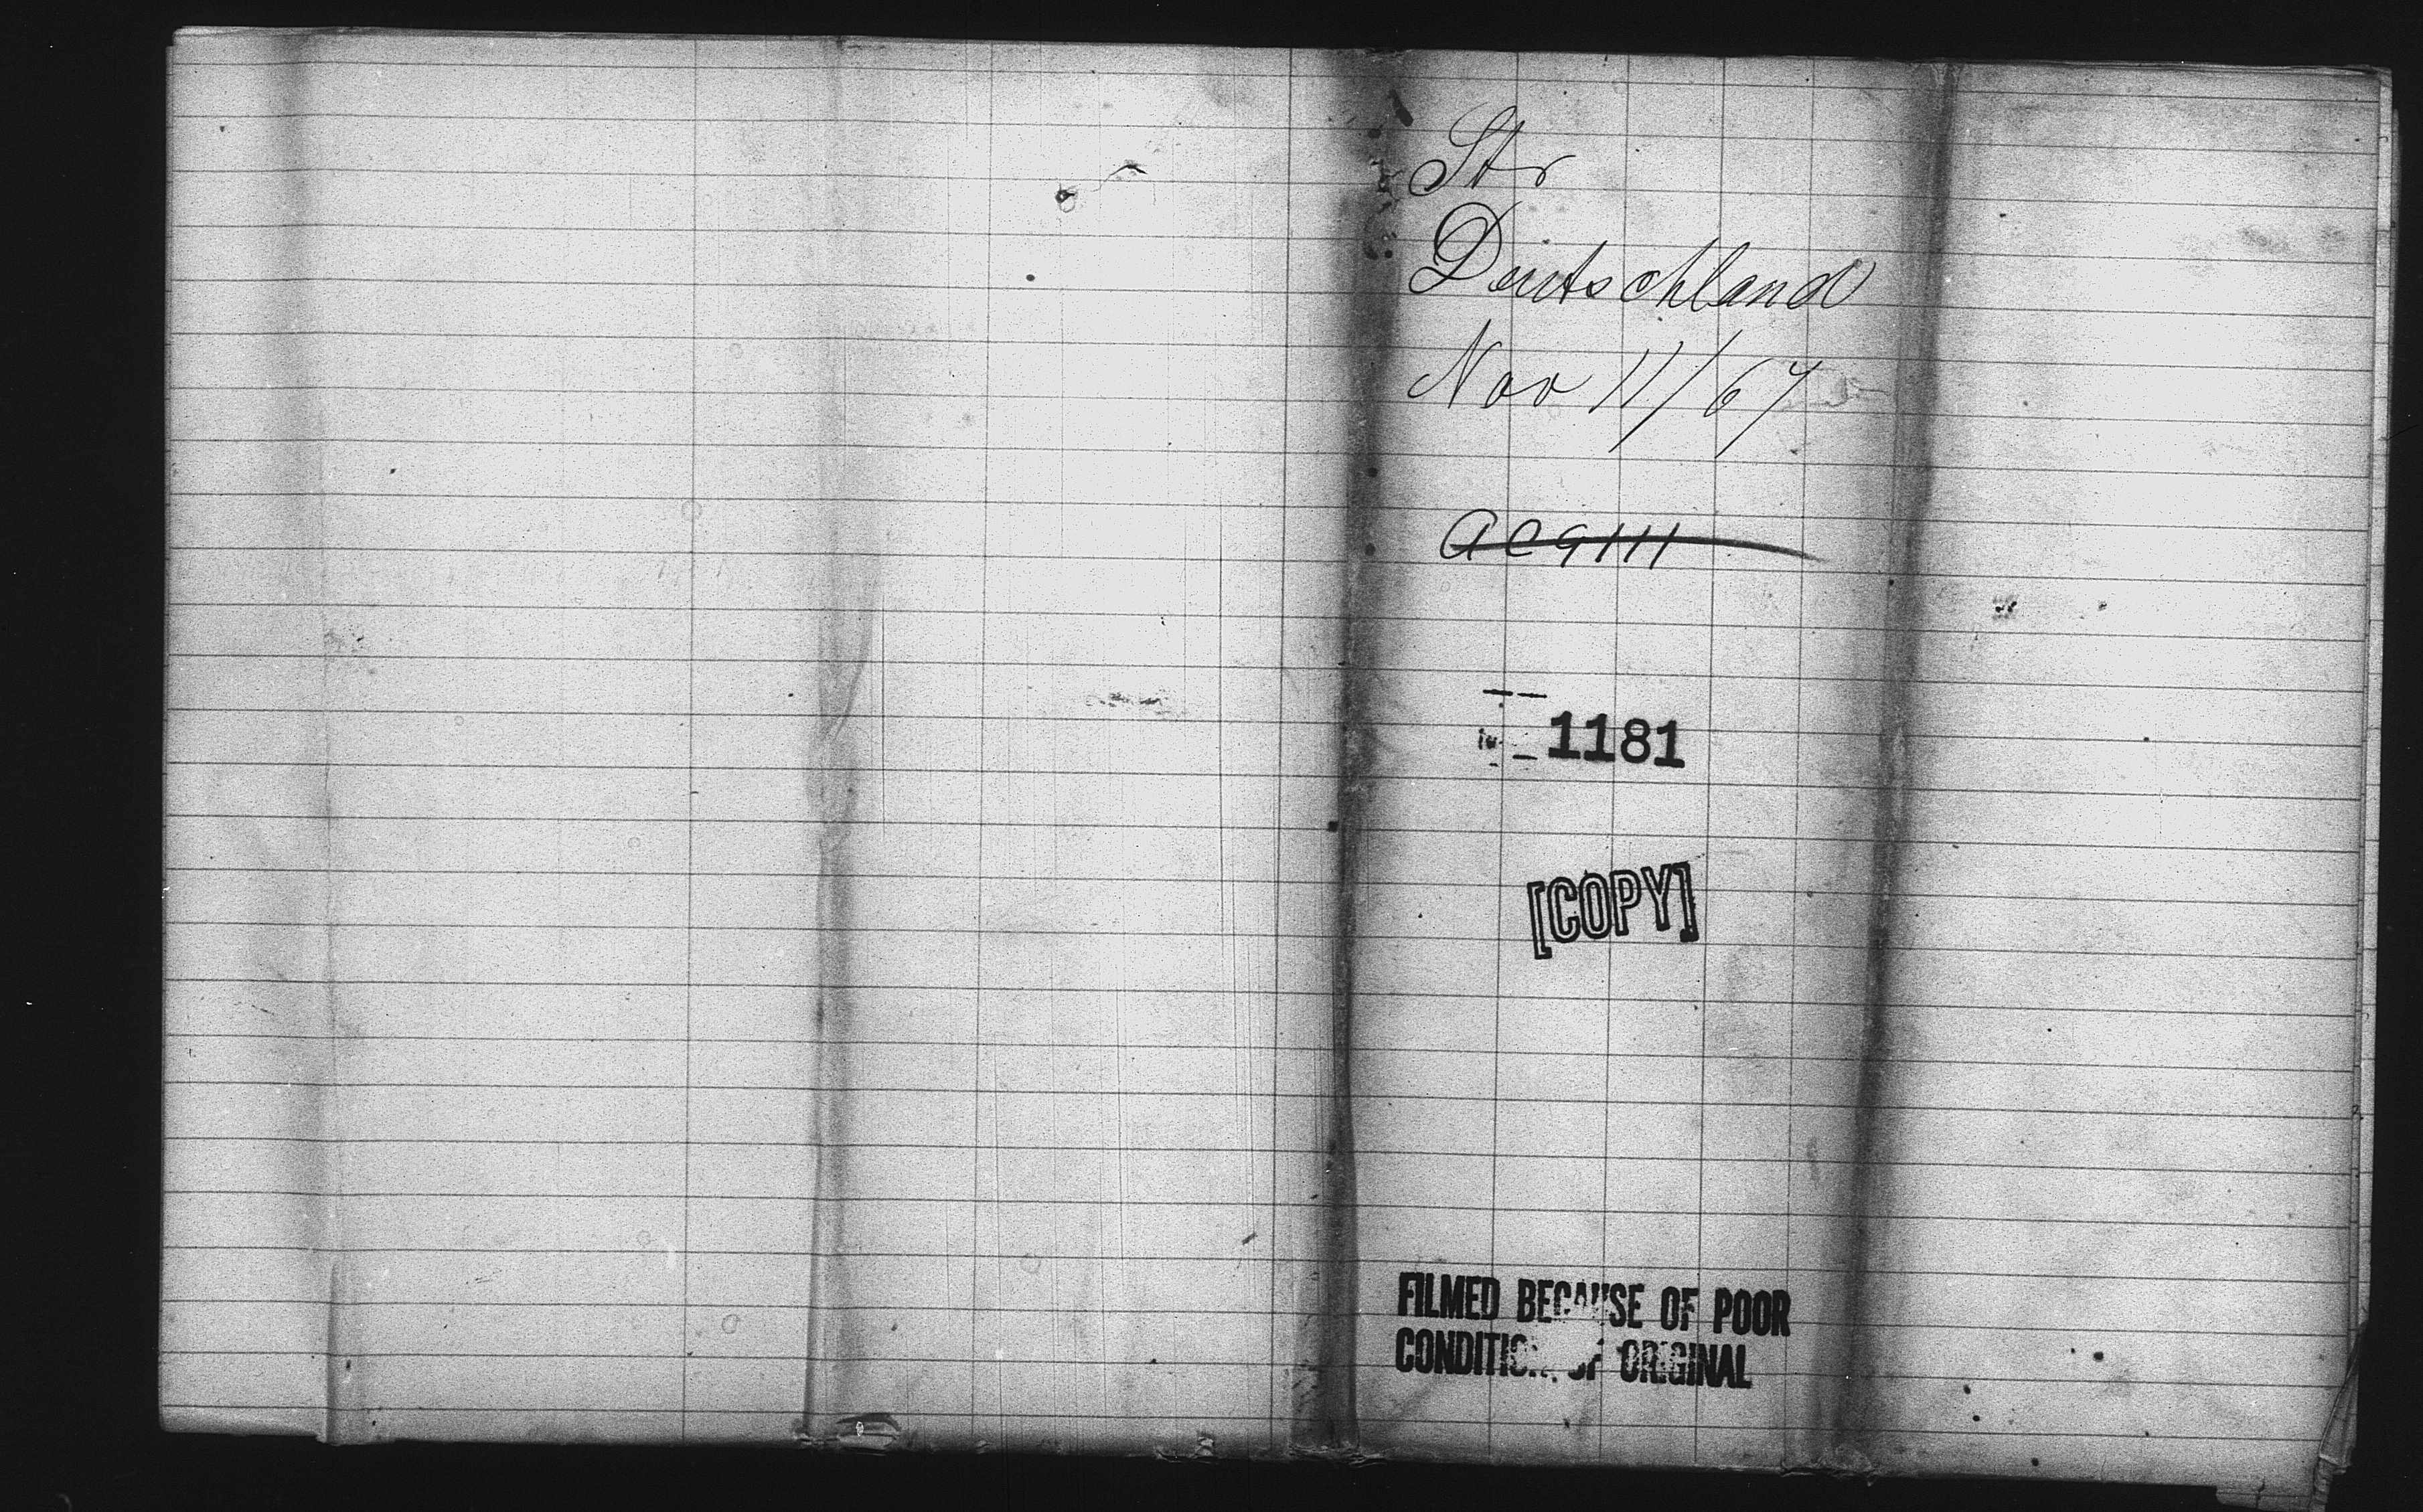 Str
Deutschland
Nov 11/67
1181
[COPY]
FILMED BECAUSE OF POOR
CONDITION OF ORIGINAL